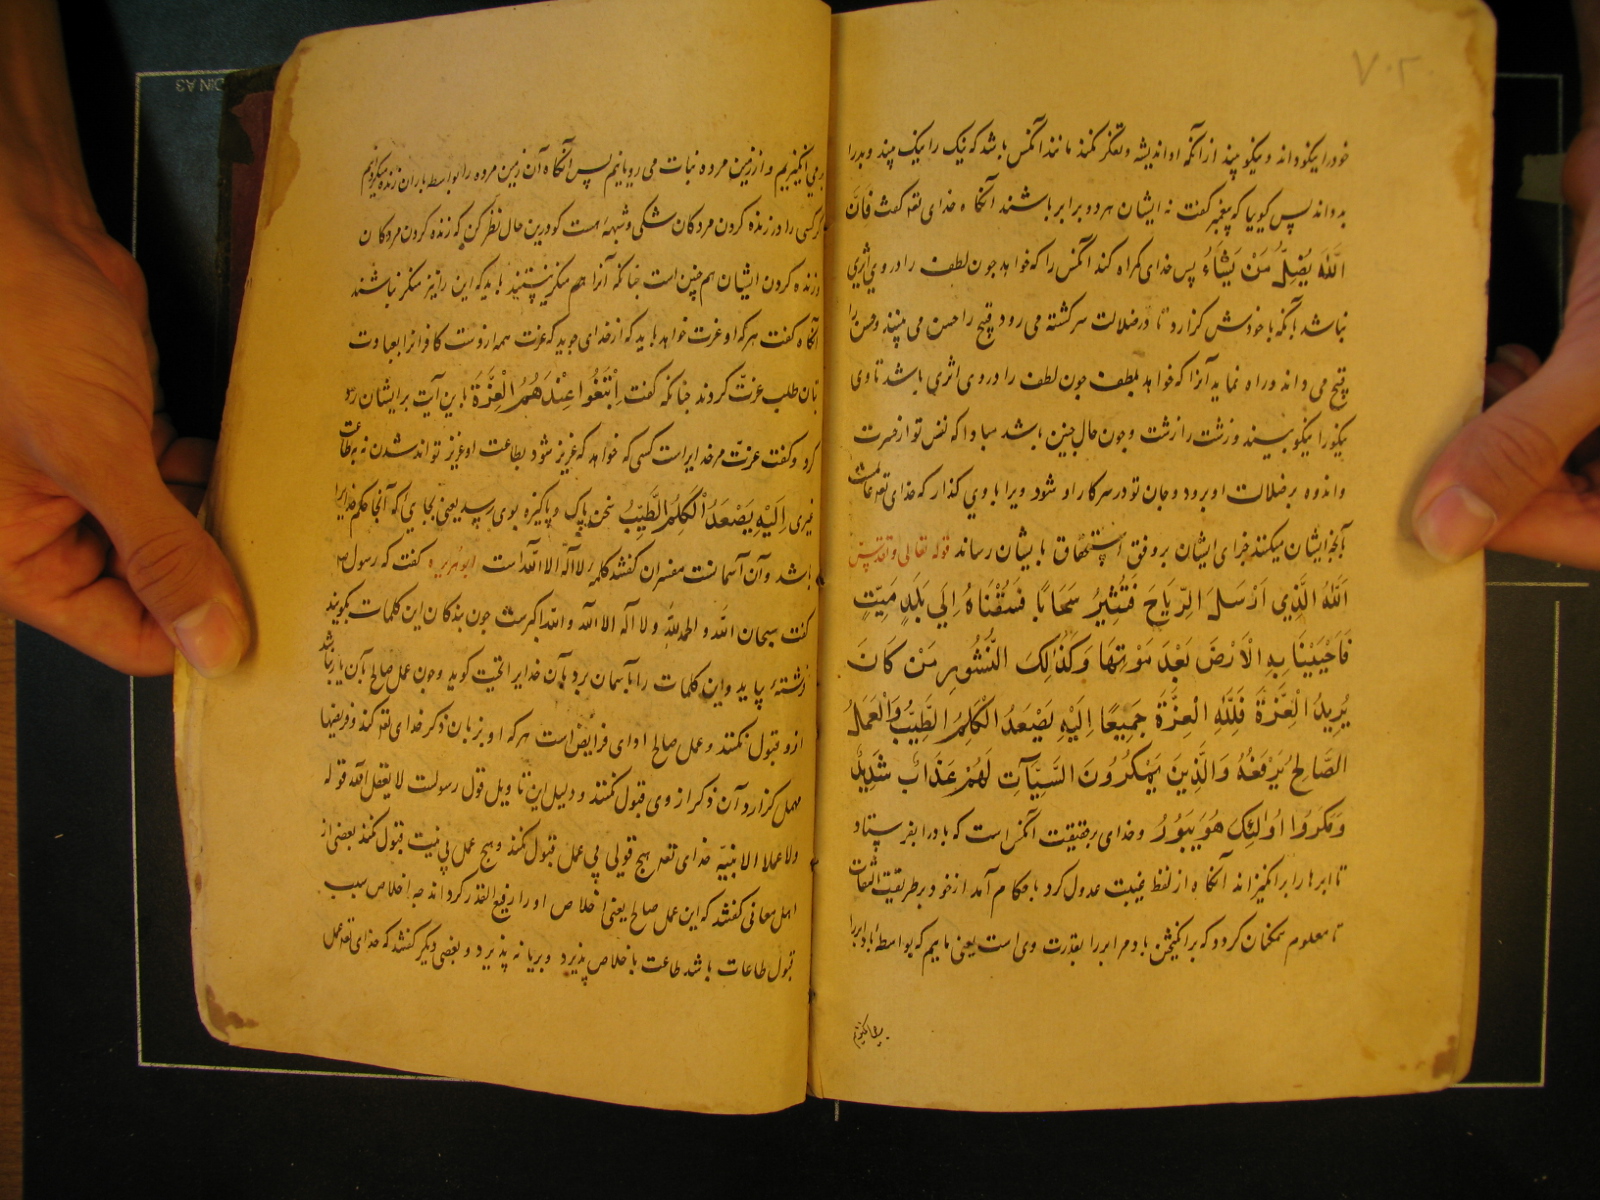 ۷۰۲
خود را نیکو داند و نیکو بیند از آنکه او اندیشه و تفکر نکند مانند آنکس باشد که نیک را نیک بیند و بد را
بد داند پس کوییا که پیغمبر کفت نه ایشان هر دو برابر باشند آنکاه خدای تعه کفت فَاِنَّ
اللّٰهَ یُضِلُّ مَنْ یَشَاءُ پس خدای کمراه کند آنکس را که خواهد جون لطف را در وی اثری
نباشد بآنکه با خودش کزارد تا در ضلالت سرکشته می رود قبیح را حسن می بیند و حسن را
قبیح می داند و راه نماید آنرا که خواهد بلطف جون لطف را در وی اثری باشد تا وی
نیکو را نیکو بیند و زشت را زشت و جون حال جنین باشد مبادا که نفس تو از حسرت
واندوه بر ضلالت او برود و جان تو در سر کار او شود ویرا با وی کذار که خدای تعه
بآنجه ایشان میکنند جزای ایشان بر وفق استحقاق بایشان رساند قوله تعالی و تقدس
اَللّٰهُ الَّذِي اَرْسَلَ الرِّيَاحَ فَتُثِيرُ سَحَابًا فَسُقْنَاهُ اِلَي بَلَدٍ مَيِّتٍ
فَاَحْيَيْنَا بِهِ الْاَرْضَ بَعْدَ مَوْتِهَا وَكَذَالِكَ النُّشُورِ مَنْ كَانَ
يُرِيدُ الْعِزَّةَ فَلِلّٰهِ الْعِزَّةَ جَمِيعًا اِلَيْهِ يَصْعَدُ الْكَلِمُ الطَّيِّبُ وَالْعَمَلُ
الصَّالِحُ يَرْفَعُهُ وَالَّذِينَ يَمْكُرُونَ السَّيِّآتِ لَهُمْ عَذَابٌ شَدِيدٌ
وَمَكَرُوا اُولٰئِكَ هُوَ يَبُورُ و خدای بر حقیقت آنکس است که باد را بفرستاد
تا ابرها را برانکیزاند آنکاه از لفظ غیبت عدول کرد باحکام آمد از خود بر طریقت التفات
تا معلوم ممکنان کردد که برانکیختن باد مر ابر را بقدرت وی است یعنی ماییم که بواسطه باد ابر را
بر می انکیزیم و از زمین مرده نبات می رویانیم پس آنکاه آن زمین مرده را بواسطه باران زنده میکردانیم
کر کسی را در زنده کردن مردکان شکی و شبههٔ هست کو درین حال نظر کن که زنده کردن مردکان
و زنده کردن ایشان هم جنین است جنانکه آنرا هم منکر نیستید باید که این را نیز منکر نباشند
آنکاه کفت هر که او عزت خواهد باید که از خدای جوید که عزت همه از وست کافران را بعبادت
بتان طلب عزت کردند جنانکه کفت اَبْتَغُوا عِنْدَهُمُ الْعِزَّةَ باین آیت بر ایشان رد
کرد و کفت عزت مر خدایراست کسی که خواهد که عزیز شود بطاعت او عزیز تواند شدن نه بطاعت
غیری اِلَيْهِ يَصْعَدُ الْكَلِمُ الطَّيِّبُ سخن پاک و پاکیزه بوی رسید یعنی بجایی که آنجا حکم خدایرا
باشد و آن آسمانست مفسران کفتند کلمه لا اله الا الله است ابو هریره کفت که رسول
کفت سبحان الله و الحمد لله و لا اله الا الله و الله اکبرست جون بندکان این کلمات بکویند
فرشتهٔ بیاید و این کلمات را بآسمان برد بآن خدایرا تحیت کوید و جون عمل صالح بآن یار نباشد
ازو قبول نکنند و عمل صالح ادای فرایض است هر که او بزبان ذکر خدای تعه کند و فریضها
مهمل کزارد آن ذکر از وی قبول نکنند و دلیل این تاویل قول رسولست لا یقبل الله قوله
ولا عملا الا بنیه خدای تعه هیج قولی بی عمل قبول نکند و هیج عمل بی نیت قبول نکند بعضی از
اهل معانی کفتند که این عمل صالح یعنی اخلاص او را رفیع القدر کرداند جه اخلاص سبب
قبول طاعات باشد طاعت باخلاص پذیرد و بریا نه پذیرد و بعضی دیکر کفتند که خدای تعه عمل